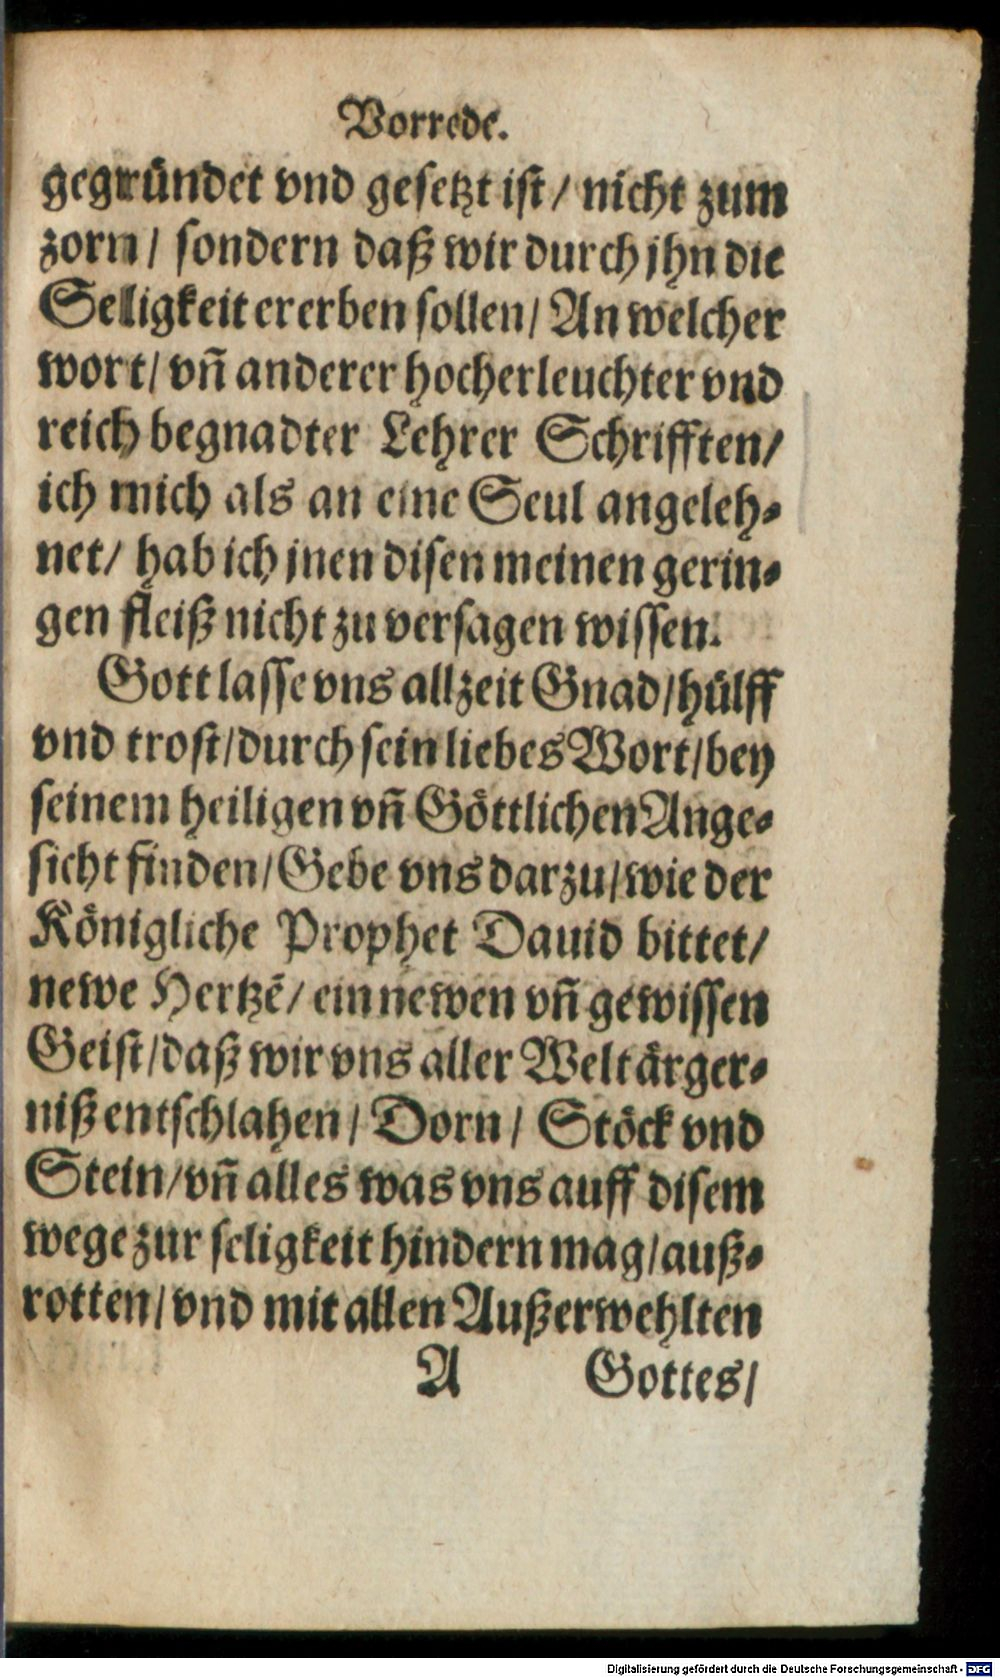 Vorrede.
gegründet vnd gesetzt ist / nicht zum
zorn / sondern daß wir durch jhn die
Seligkeit ererben sollen / An welcher
wort / vñ anderer hocherleuchter vnd
reich begnadter Lehrer Schrifften /
ich mich als an eine Seul angeleh-
net / hab ich jnen disen meinen gerin-
gen fleiß nicht zu versagen wissen.
Gott lasse vns allzeit Gnad / hülff
vnd trost / durch sein liebes Wort / bey
seinem heiligen vñ Göttlichen Ange-
sicht finden / Gebe vns darzu / wie der
Königliche Prophet Dauid bittet /
newe Hertzẽ / ein newen vñ gewissen
Geist / daß wir vns aller Welt ärger-
niß entschlahen / Dorn / Stöck vnd
Stein / vñ alles was vns auff disem
wege zur seligkeit hindern mag / auß-
rotten / vnd mit allen Außerwehlten
A Gottes /
Digitalisierung gefördert durch die Deutsche Forschungsgemeinschaft - DFG